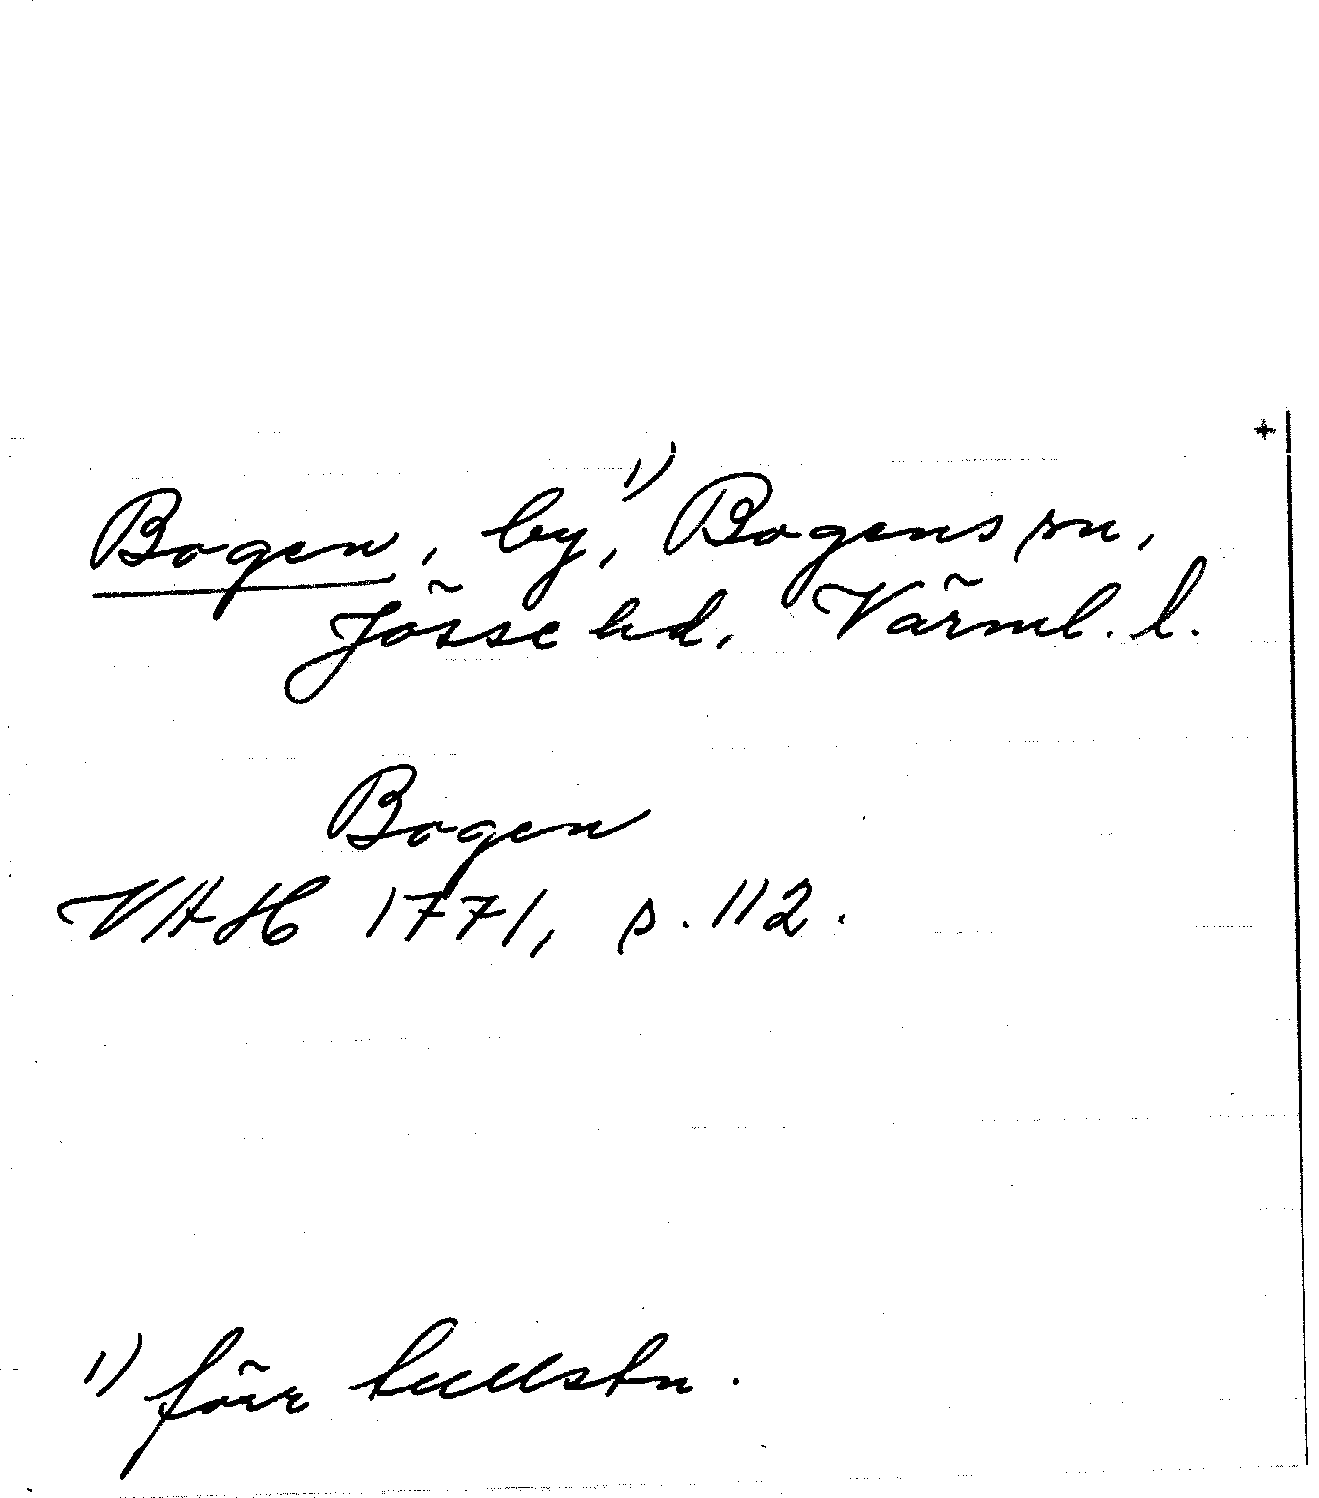 Bogen, by,¹⁾ Bogens sn,
Jösse hd, Värml. l.
Bogen
VAH 1771, s. 112.
1) förr tullstn.